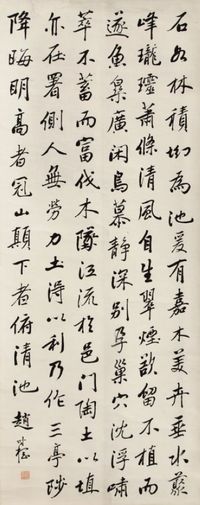 石如林積坳為池爰有嘉木美卉垂水藂
峰瓏瓏蕭條清風自生翠煙欲留不植而
遂魚鼻廣閑鳥慕靜深別孕巢穴沈浮嘯
萃不蓄而富伐木隊江流於邑門陶土以埴
亦在署側人無勞力土得以利乃作三亭陟
降晦明高者冠山顛下者俯清池 趙